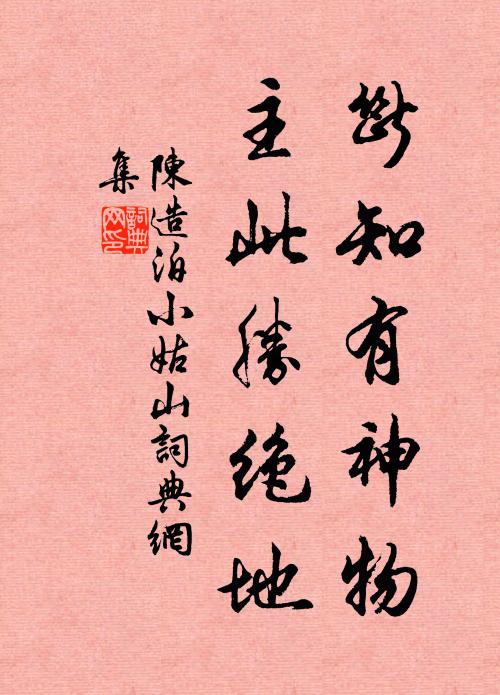 斷知有神物
主此勝絶地
陳造泊小姑山詞典網
集
詞典
网印